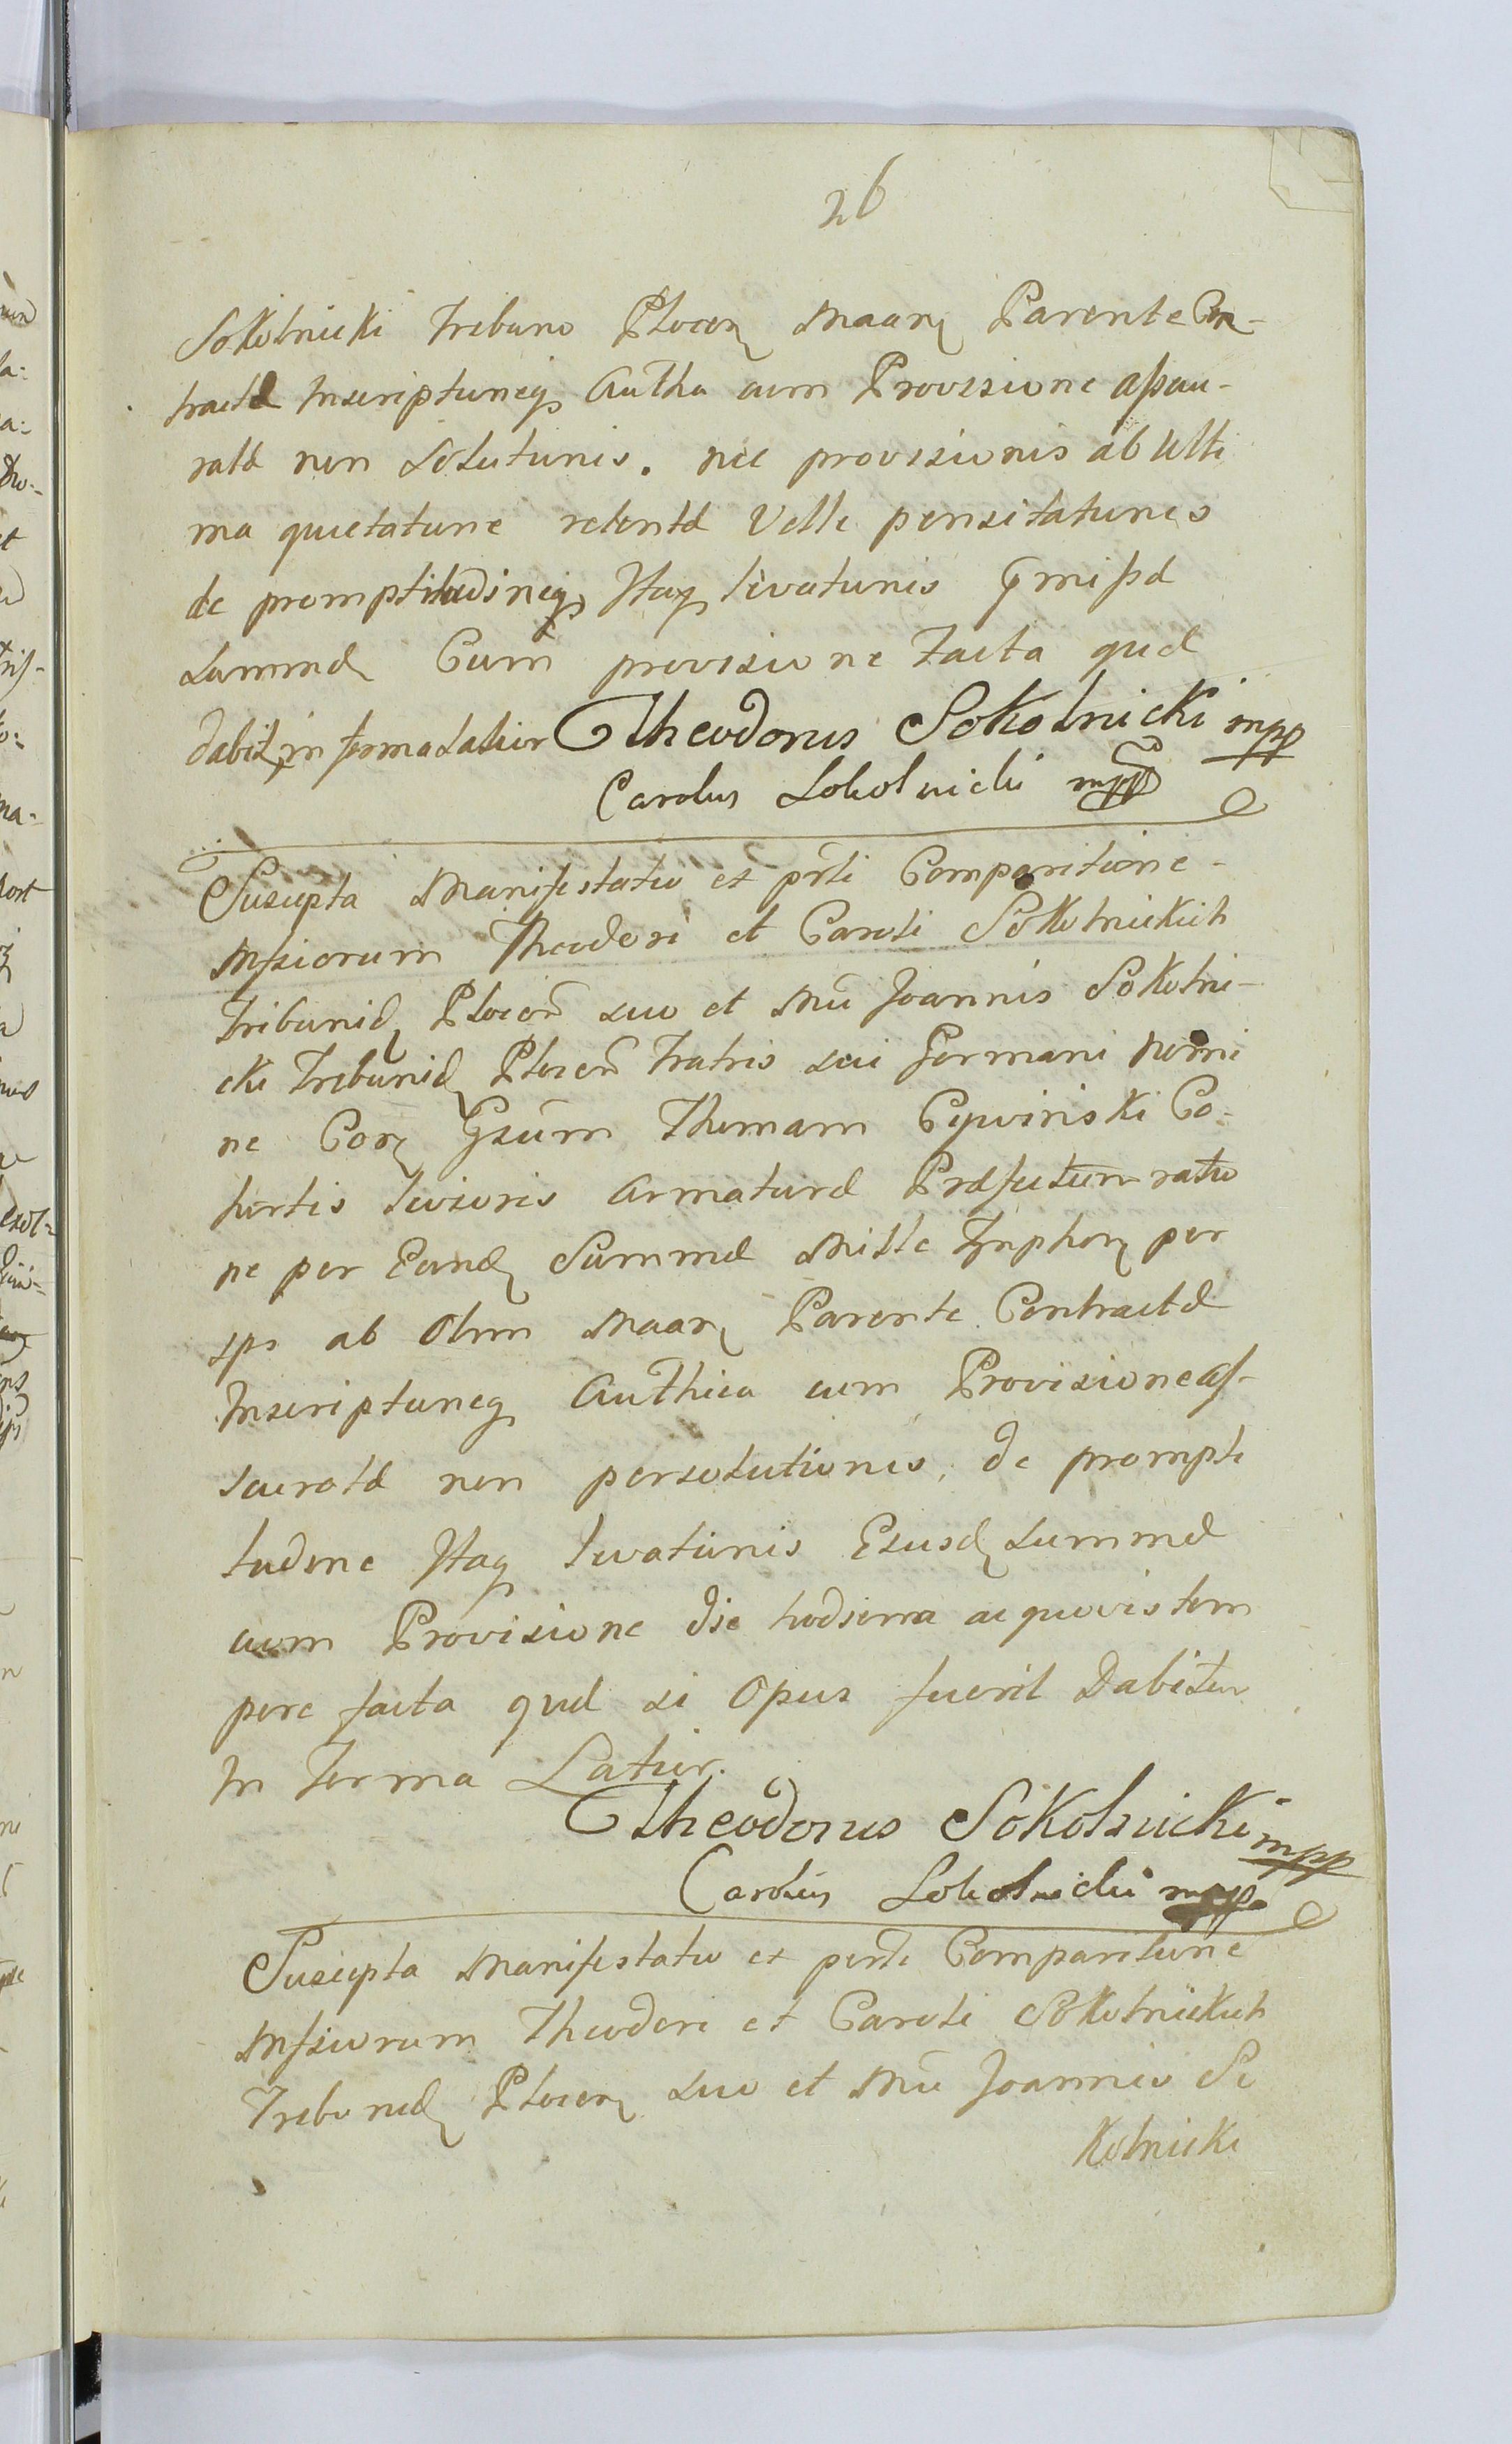 26
Sokolnicki Tribuno Plocen Maar Parente Con-
tractæ Inscriptioneq Autha cum Provisione assecu-
ratæ non Solutionis. nec provisionis ab Ulti
ma quietatione retentæ Velle pensitationis
de promptitudineq Itaq levationis pmissæ
Summæ Cum provisione facta quæ
dabit in forma latior Theodorus Sokolnicki mpp
Carolus Sokolnicki mpp
Suscepta Manifestatio et prsti Comparitione
Mfficorum Theodori et Caroli Sokolnickich
Tribunid Plocen suo et Mci Joannis Sokolni-
cki Tribunid Plocen Fratris sui Germani nomi
ne Cor Gsum Thomam Cywinski Co-
hortis levioris Armaturæ Præfectum ratio
ne per Eund Summæ Mille Tynphor per
ips ab Olim Maar Parente Contractæ
Inscriptioneq Authica cum Provisione as-
securatæ non persolutionis, de prompti
tudine Itaq levationis Ejusd Summæ
cum Provisione die hodierna ac quovis tem
pore facta quæ si Opus fuerit Dabitur
In Forma Latior.
Theodorus Sokolnicki mpp
Carolus Sokolnicki mpp
Suscepta Manifestatio et personli Comparitione
Mfficorum Theodori et Caroli Sokolnickich
Tribunid Plocen suo et Mci Joannis So
kolnicki